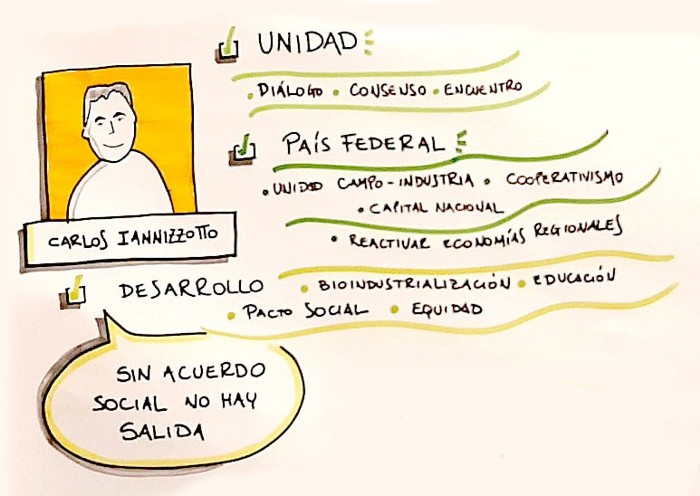 UNIDAD
• DIÁLOGO • CONSENSO • ENCUENTRO
PAÍS FEDERAL
• UNIDAD CAMPO-INDUSTRIA • COOPERATIVISMO
• CAPITAL NACIONAL
• REACTIVAR ECONOMÍAS REGIONALES
CARLOS IANNIZZOTTO
DESARROLLO • BIOINDUSTRIALIZACIÓN • EDUCACIÓN
• PACTO SOCIAL • EQUIDAD
SIN ACUERDO
SOCIAL NO HAY
SALIDA